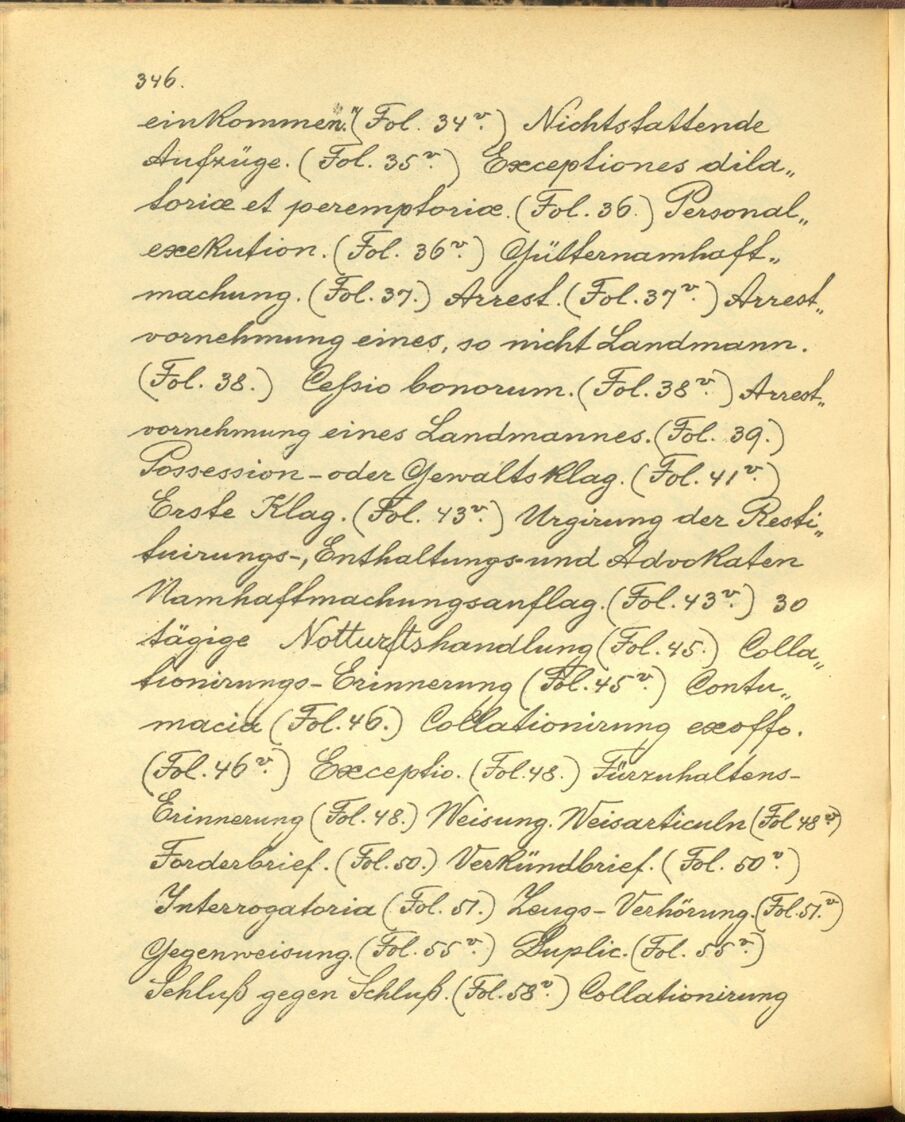 346.
einkommen." (Fol. 34ᵛ.) Nichtstattende
Aufzüge. (Fol. 35ᵛ.) Exceptiones dila„
toriæ et peremptoriæ. (Fol. 36.) Personal„
exekution. (Fol. 36ᵛ.) Gütternamhaft„
machung. (Fol. 37.) Arrest. (Fol. 37ᵛ.) Arrest„
vornehmung eines, so nicht Landmann.
(Fol. 38.) Cessio bonorum. (Fol. 38ᵛ.) Arrest„
vornehmung eines Landmannes. (Fol. 39.)
Possession- oder Gewaltsklag. (Fol. 41ᵛ.)
Erste Klag. (Fol. 43ᵛ.) Urgirung der Resti„
tuirungs-, Enthaltungs- und Advokaten
Namhaftmachungsauflag. (Fol. 43ᵛ.) 30
tägige Notturftshandlung (Fol. 45.) Colla„
tionirungs-Erinnerung (Fol. 45ᵛ.) Contu„
macia (Fol. 46.) Collationirung exoffo.
(Fol. 46ᵛ.) Exceptio. (Fol. 48.) Fürzuhaltens-
Erinnerung (Fol. 48.) Weisung. Weisarticuln (Fol 48ᵛ)
Forderbrief. (Fol. 50.) Verkündbrief. (Fol. 50ᵛ.)
Interrogatoria (Fol. 51.) Zeugs-Verhörung. (Fol. 51.ᵛ)
Gegenweisung. (Fol. 55ᵛ.) Duplic. (Fol. 55ᵛ.)
Schluß gegen Schluß. (Fol. 58ᵛ.) Collationirung